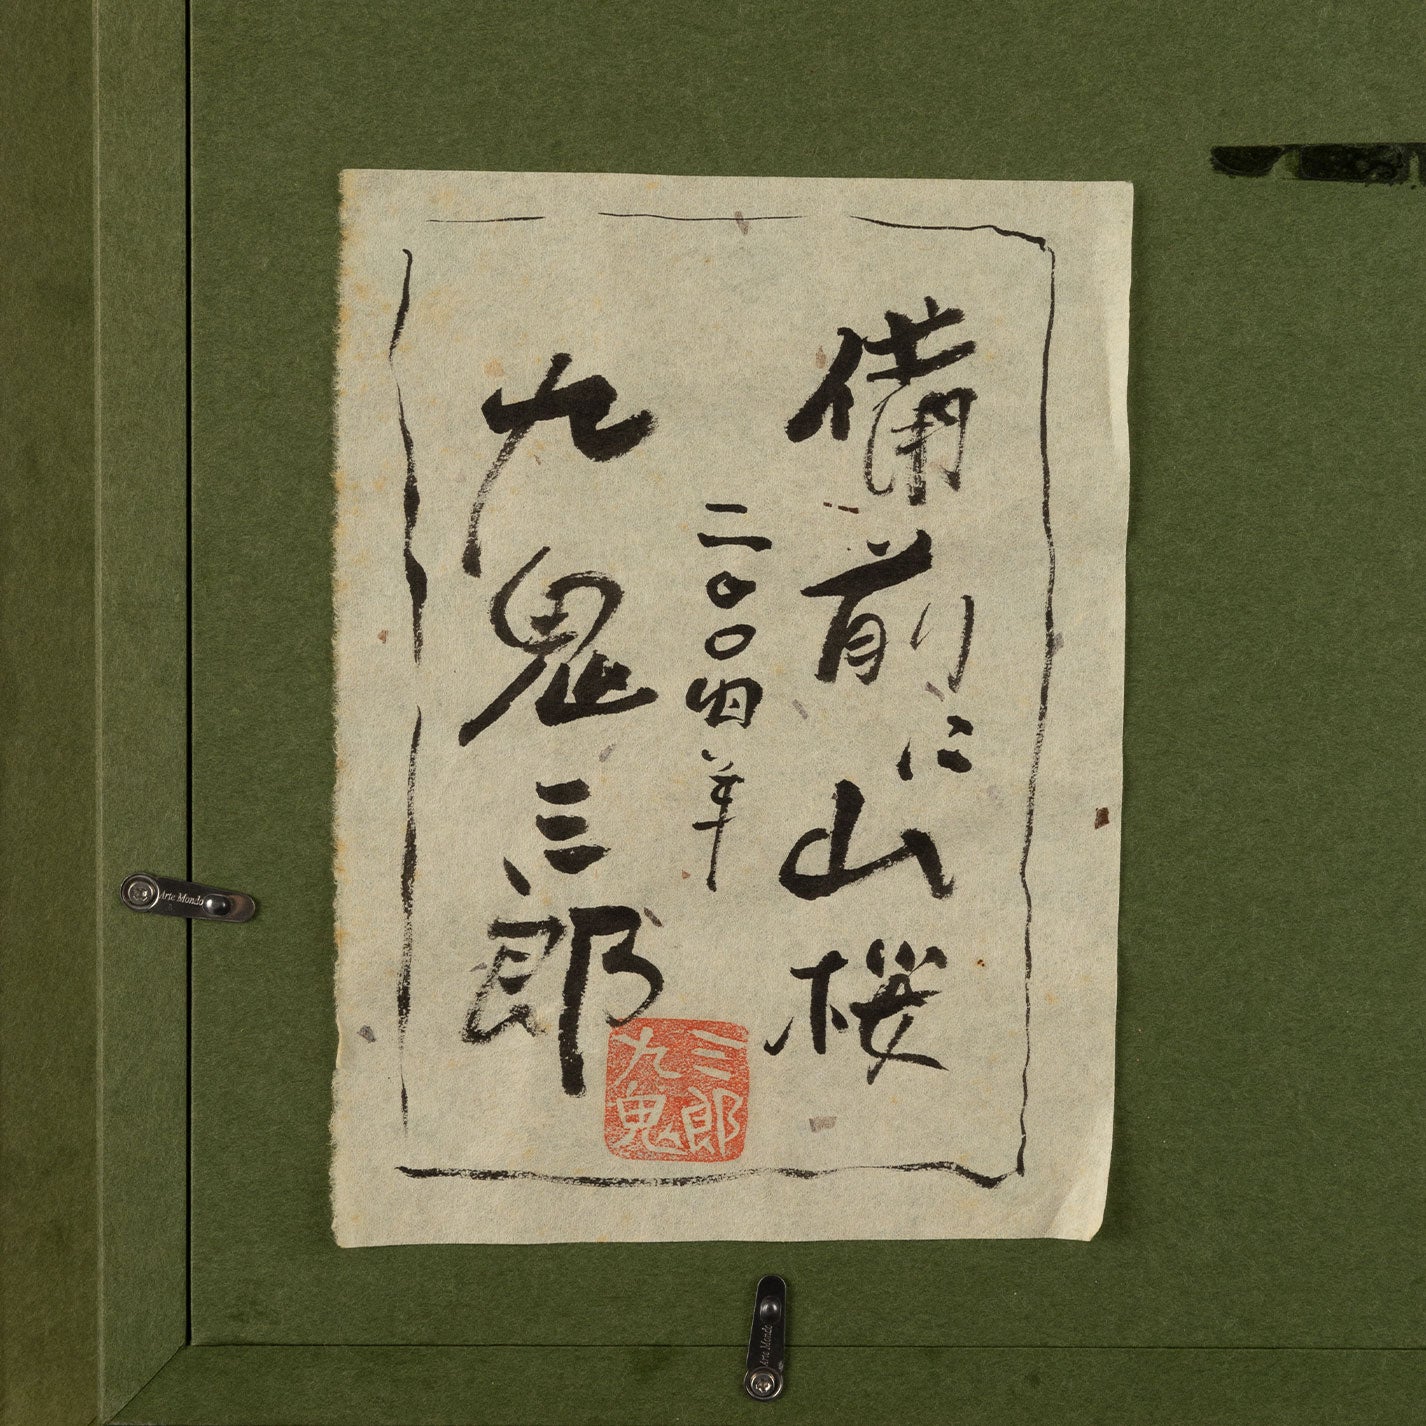 備前に山桜
二〇〇四年
九鬼三郎
三郎
九鬼
Arte Mondo
Arte Mondo